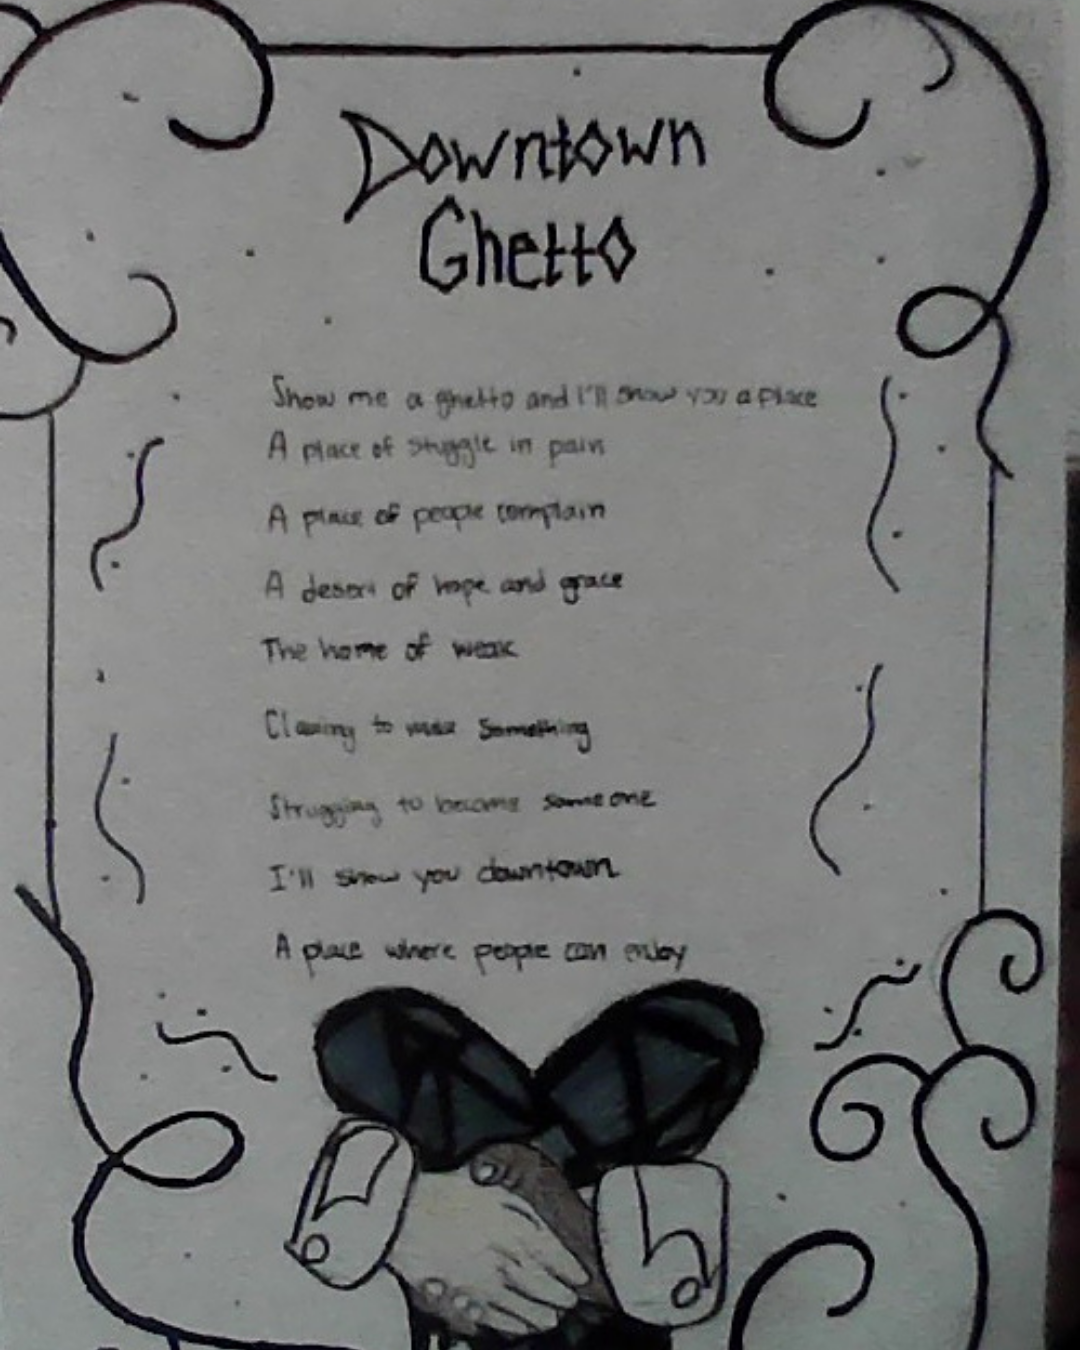 Downtown
Ghetto
Show me a ghetto and I'll show you a place
A place of stuggle in pain
A place of people complain
A desert of hope and grace
The home of weak
to something
Struggling to become someone
I'll show you downtown
A place where people can enjoy